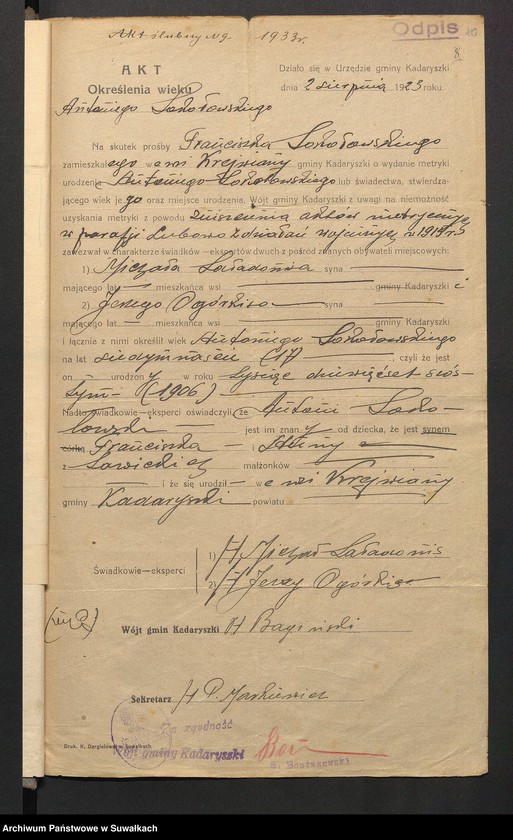 Akt ślubny № 9 1933 r.
Odpis
AKT
Określenia wieku
Antoniego Sokołowskiego
Działo się w Urzędzie gminy Kadaryszki
dnia 2 sierpnia 1923 roku.
Na skutek prośby Franciszka Sokołowskiego
zamieszkałego w e wsi Krejwiany gminy Kadaryszki o wydanie metryki
urodzenia Antoniego Sokołowskiego lub świadectwa, stwierdza-
jącego wiek jego oraz miejsce urodzenia, Wójt gminy Kadaryszki z uwagi na niemożność
uzyskania metryki z powodu zniszczenia aktów metrycznych
w parafji Lubowo działań wojennych w 1914 r.
zawezwał w charakterze świadków—ekspertów dwuch z pośród znanych obywateli miejscowych:
1) Michała Saładonisa syna
mającego lat — mieszkańca wsi gminy Kadaryszki i
2) Jerzego Ogórkisa syna
mającego lat — mieszkańca wsi gminy Kadaryszki
i łącznie z nimi określił wiek Antoniego Sokołowskiego
na lat siedymnaście (17) , czyli że jest
on urodzony w roku tysiąc dziewięćset szós-
tym — (1906)
Nadto świadkowie—eksperci oświadczyli, że Antoni Soko-
łowski jest im znany od dziecka, że jest synem
córką Franciszka — i
z Sawickich małżonków
i że się urodził — w e wsi Krejwiany
gminy Kadaryszki powiatu
Świadkowie—eksperci
1) /-/ Michał Saładonis
2) /-/ Jerzy Ogórkis
Wójt gmin Kadaryszki /-/ Bagiński
Sekretarz /-/ P. Markiewicz
Za zgodność
Wójt gminy Kadaryszki
Druk. K. Dargielowej w Suwałkach
Archiwum Państwowe w Suwałkach